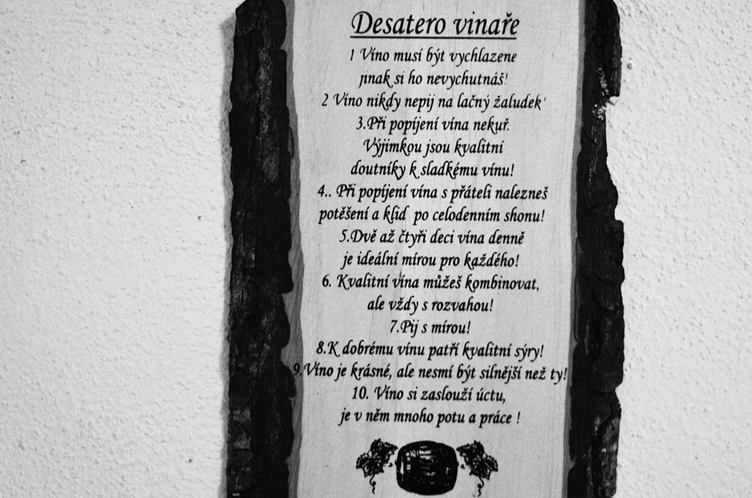 Desatero vinaře
1 Víno musí být vychlazene
jinak si ho nevychutnáš!
2 Víno nikdy nepij na lačný žaludek!
3.Při popíjení vína nekuř.
Výjimkou jsou kvalitní
doutníky k sladkému vínu!
4.. Při popíjení vína s přáteli nalezneš
potěšení a klid po celodenním shonu!
5.Dvě až čtyři deci vína denně
je ideální mírou pro každého!
6. Kvalitní vína můžeš kombinovat,
ale vždy s rozvahou!
7.Pij s mírou!
8.K dobrému vínu patří kvalitní sýry!
9.Víno je krásné, ale nesmí být silnější než ty!
10. Víno si zaslouží úctu,
je v něm mnoho potu a práce !